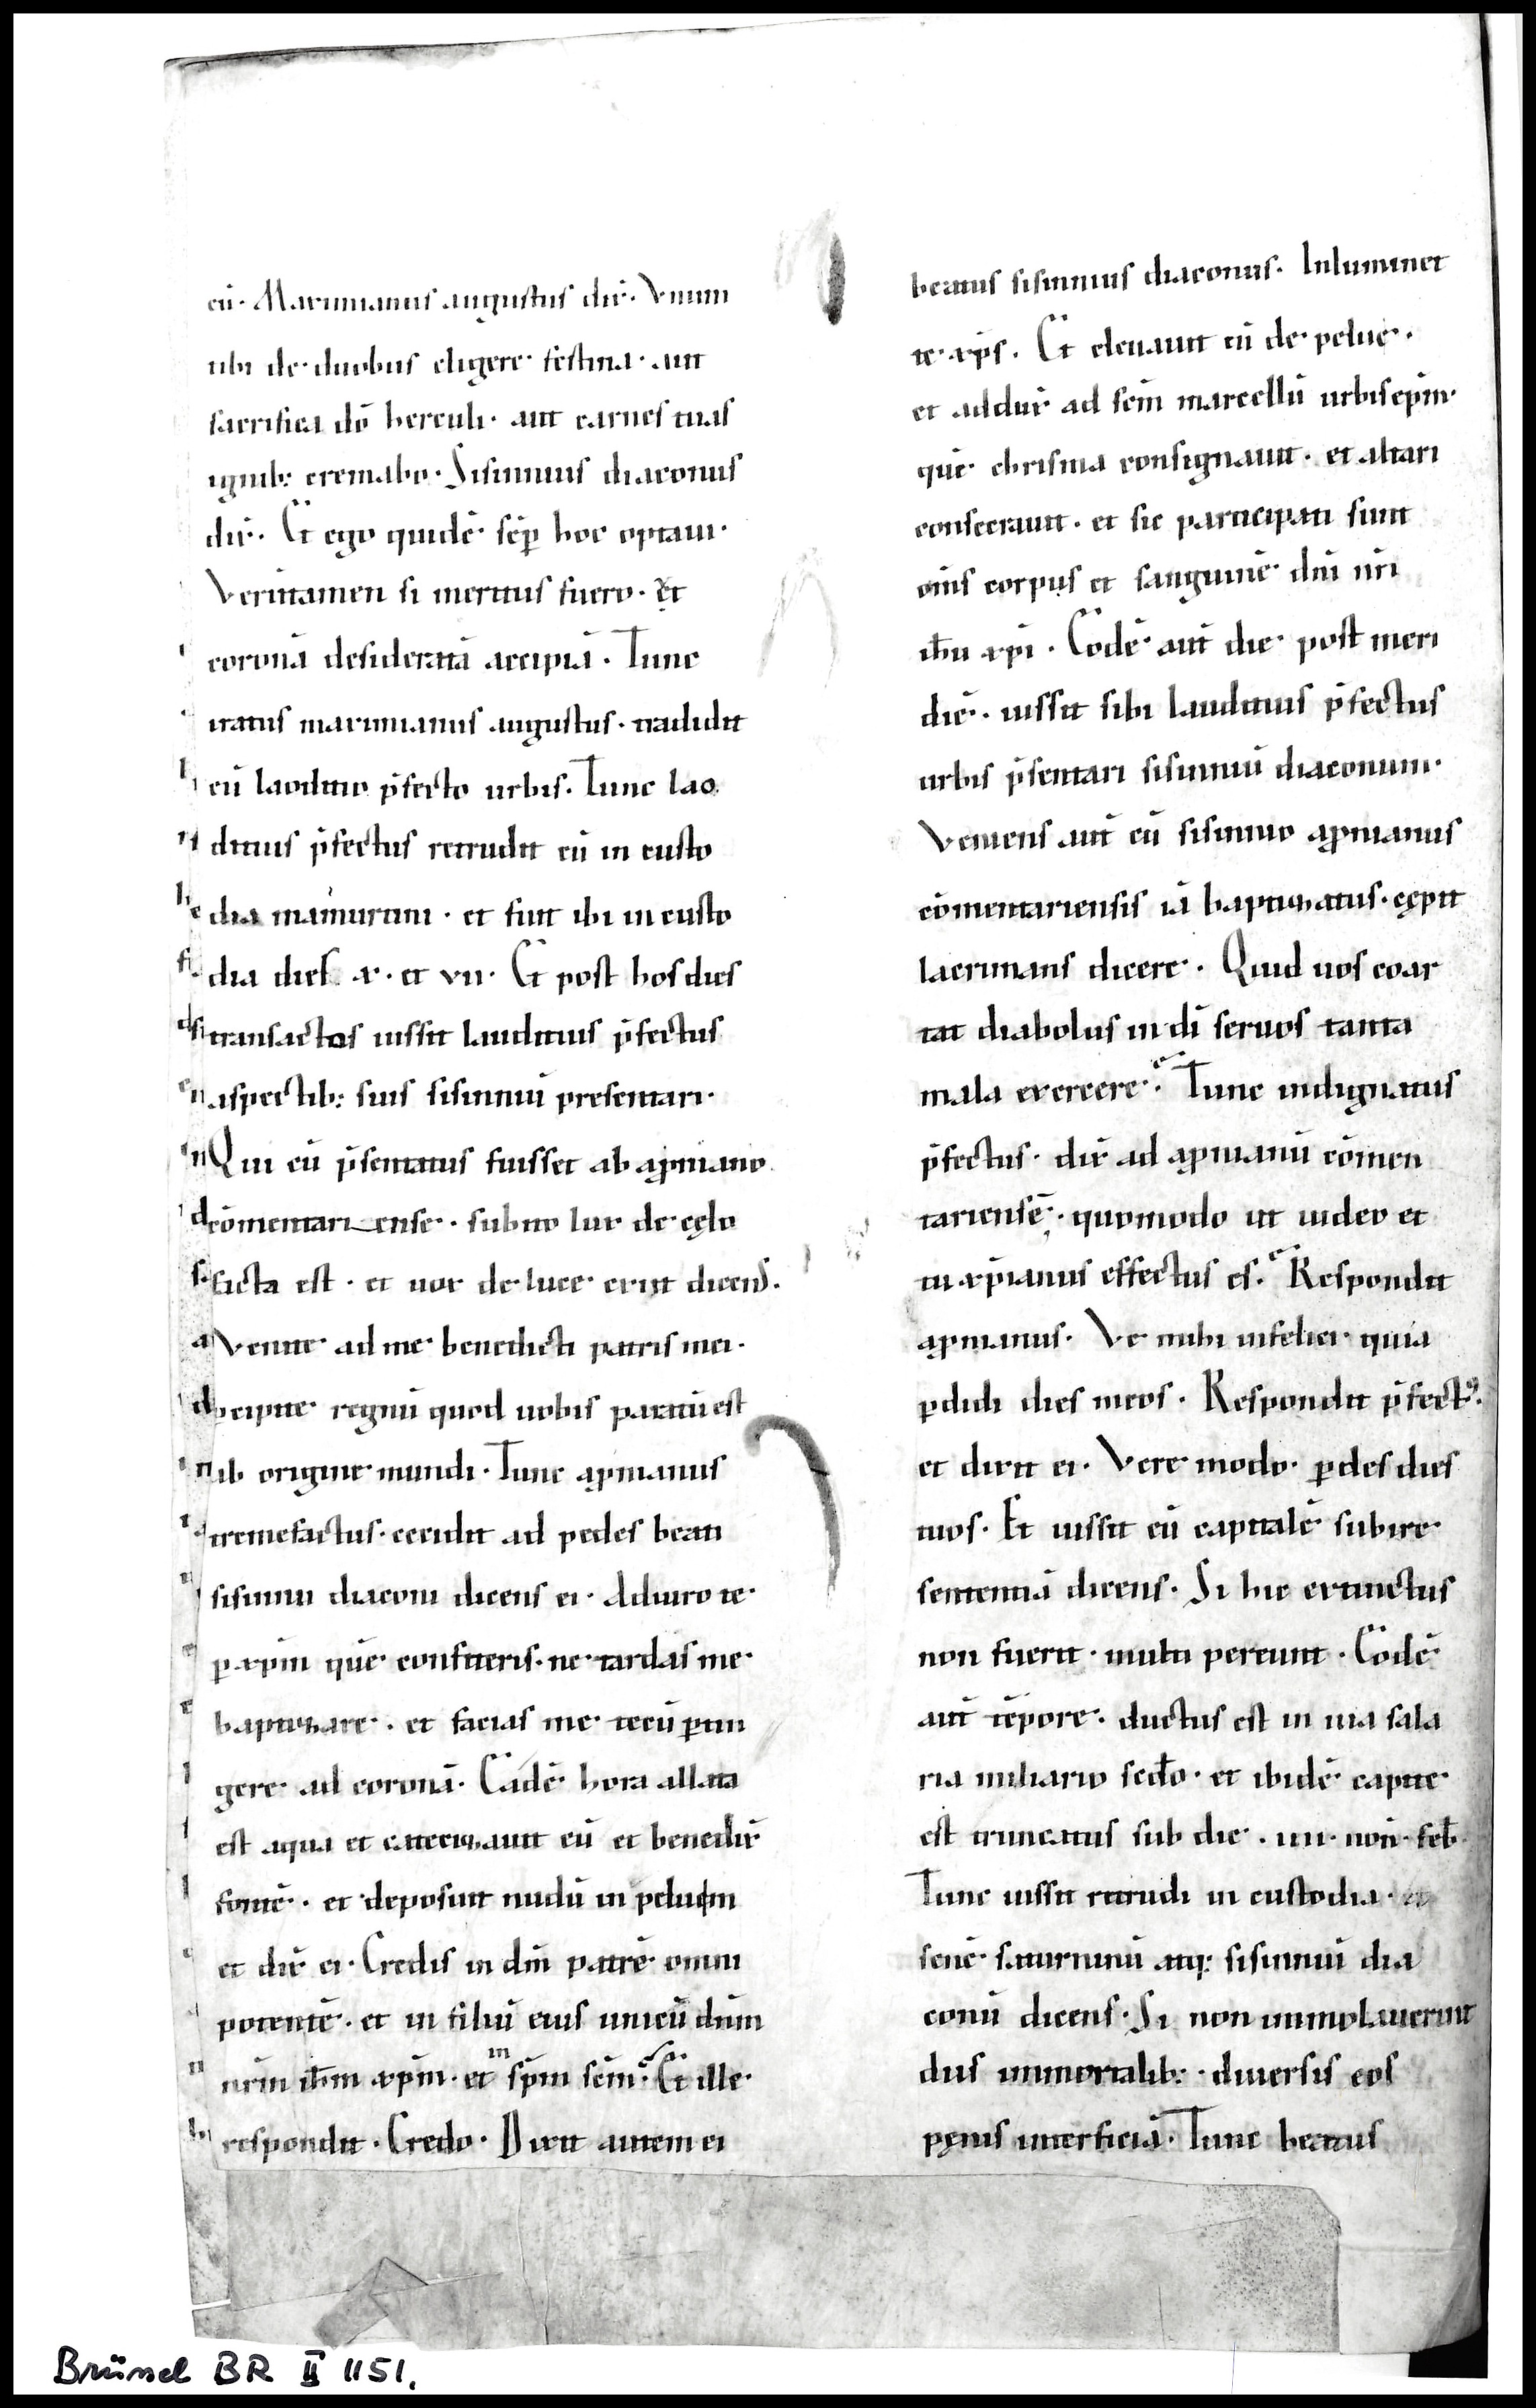 eū· Maximianus augustus dix̄· Vnum
tibi de duobus eligere festina· aut
sacrifica dō herculi· aut carnes tuas
ignib; cremabo· Sisinnius diaconus
dix̄· Et ego quidē sēp̄ hoc optaui·
Veruttamen si meritus fuero· et
coronā desideratā accipiā· Tunc
iratus maximianus augustus· tradidit
eū laoditio p̄fecto urbis· Tunc lao
ditius p̄fectus retrudit eū in custo
dia mamurtini· et fuit ibi in custo
dia dies· x· et vii· Et post hos dies
transactos iussit lauditius p̄fectus
aspectib; suis sisinniū presentari·
Qui cū p̄sentatus fuisset ab aꝓniano
cōmentariense· subito lux de cęlo
facta est· et uox de luce exiit dicens·
Venite ad me benedicti patris mei·
percipite regnū quod uobis paratū est
ab origine mundi· Tunc aꝓnianus
tremefactus· cecidit ad pedes beati
sisinnii diaconi dicens ei· Adiuro te·
ꝑ xp̄m quē confiteris· ne tardas me·
baptizare· et facias me tecū ꝑtin
gere ad coronā· Eadē hora allata
est aqua et catecizauit eū et benedix̄
fontē· et deposuit nudū in peluem
et dix̄ ei· Credis in dm̄ patrē omni
potentē· et in filiū eius unicū dn̄m
nr̄m ih̄m xp̄m· et in sp̄m sc̄m· Et ille
respondit· Credo· Dixit autem ei
beatus sisinnius diaconus· Inluminet
te xp̄s· Et eleuauit eū de pelue·
et addux̄ ad sc̄m marcellū urbis ep̄m·
quē chrisma consignauit· et altari
consecrauit· et sic participati sunt
om̄s corpus et sanguinē dn̄i nr̄i
ih̄u xp̄i· Eodē aūt die post meri
diē· iussit sibi lauditius p̄fectus
urbis p̄sentari sisinniū diaconum·
Veniens aūt cū sisinnio aꝓnianus
cōmentariensis iā baptizatus· cępit
lacrimans dicere· Quid uos coar
tat diabolus in dī seruos tanta
mala exercere· Tunc indignatus
p̄fectus· dix̄ ad aꝓnianū cōmen
tariensē· quomodo ut uideo et
tu xp̄ianus effectus es· Respondit
aꝓnianus· Ve mihi infelici quia
ꝑdidi dies meos· Respondit p̄fect⁹·
et dixit ei· Vere modo ꝑdes dies
tuos· Et iussit eū capitalē subire
sententiā dicens· Si hic extinctus
non fuerit· multi pereunt· Eodē
aūt tēpore· ductus est in uia sala
ria miliario secd̄o· et ibidē capite
est truncatus sub die· iiii· non̄· feb̄
Tunc iussit retrudi in custodia·
senē saturninū atq; sisinniū dia
conū dicens· Si non immolauerint
diis immortalib;· diuersis eos
pęnis interficiā· Tunc beatus
Brüssel BR II 1151.